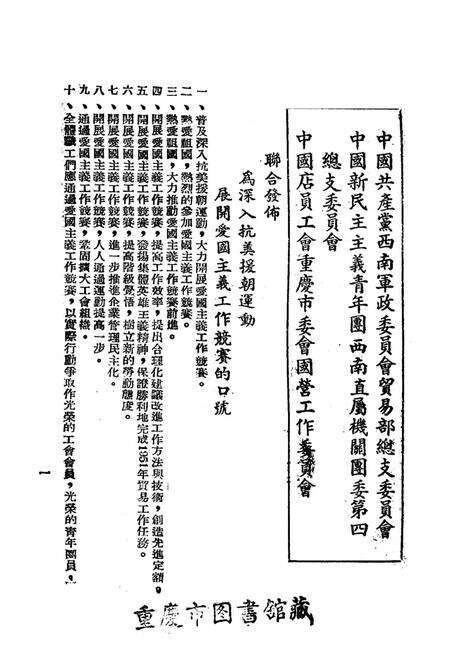 中國共產黨西南軍政委員會貿易部總支委員會
中國新民主主義青年團西南直屬機關團委第四
總支委員會
中國店員工會重慶市委會國營工作委員會
聯合發佈
為深入抗美援朝運動
展開愛國主義工作競賽的口號
一、普及深入抗美援朝運動，大力開展愛國主義工作競賽。
二、熱愛祖國，熱烈的參加愛國主義工作競賽。
三、熱愛祖國，大力推動愛國主義工作競賽前進。
四、開展愛國主義工作競賽，提高工作效率，提出合理化建議改進工作方法與技術，創造先進定額。
五、開展愛國主義工作競賽，發揚集體英雄主義精神，保證勝利地完成1951年貿易工作任務。
六、開展愛國主義工作競賽，提高階級覺悟，樹立新的勞動態度。
七、開展愛國主義工作競賽，進一步推進企業管理民主化。
八、開展愛國主義工作競賽，人人通過運動提高一步。
九、通過愛國主義工作競賽，鞏固擴大工會組織。
十、全體職工們應通過愛國主義工作競賽，以實際行動爭取作光榮的工會會員，光榮的青年團員，
一
重慶市图書舘藏